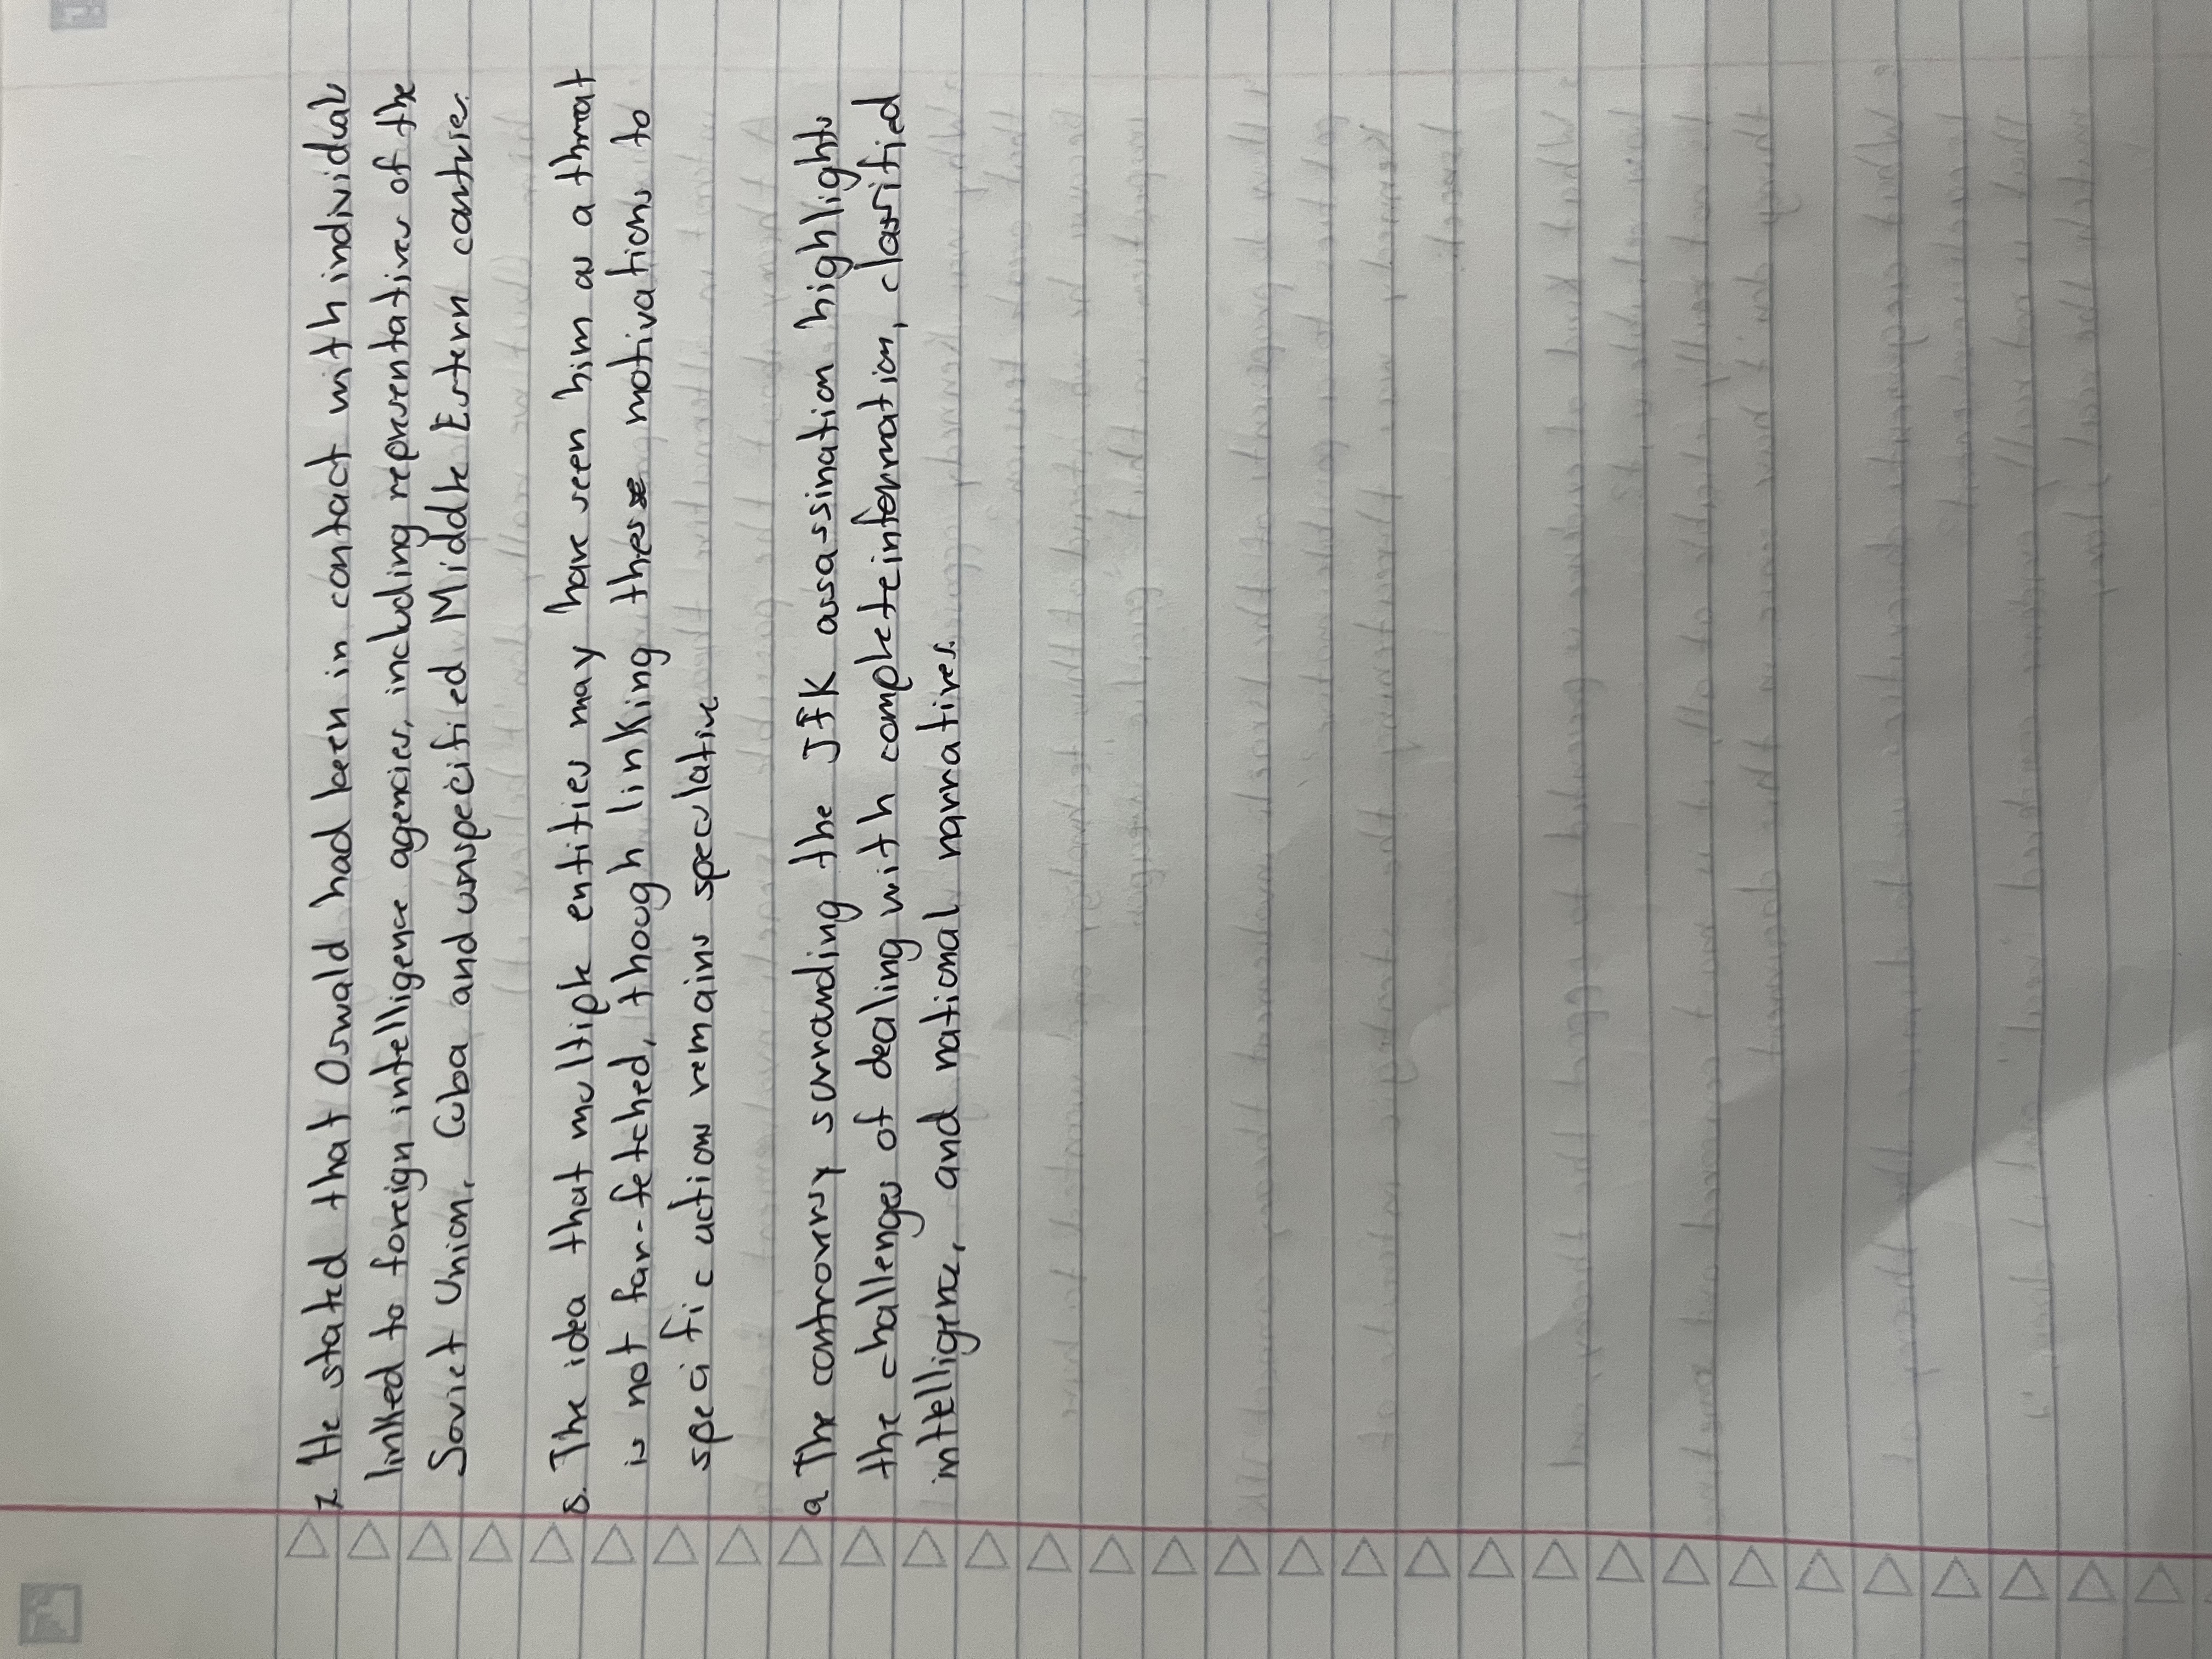 7. He stated that Oswald had been in contact with individuals
linked to foreign intelligence agencies, including representatives of the
Soviet Union, Cuba and unspecified Middle Estern contries.
8. The idea that multiple entities may have seen him as a threat
is not far-fetched, though linking these motivations to
specific actions remains speculative
9 The controversy surranding the JFK assassination highlights
the challenges of dealing with complete information, classified
intelligence, and national narratives.